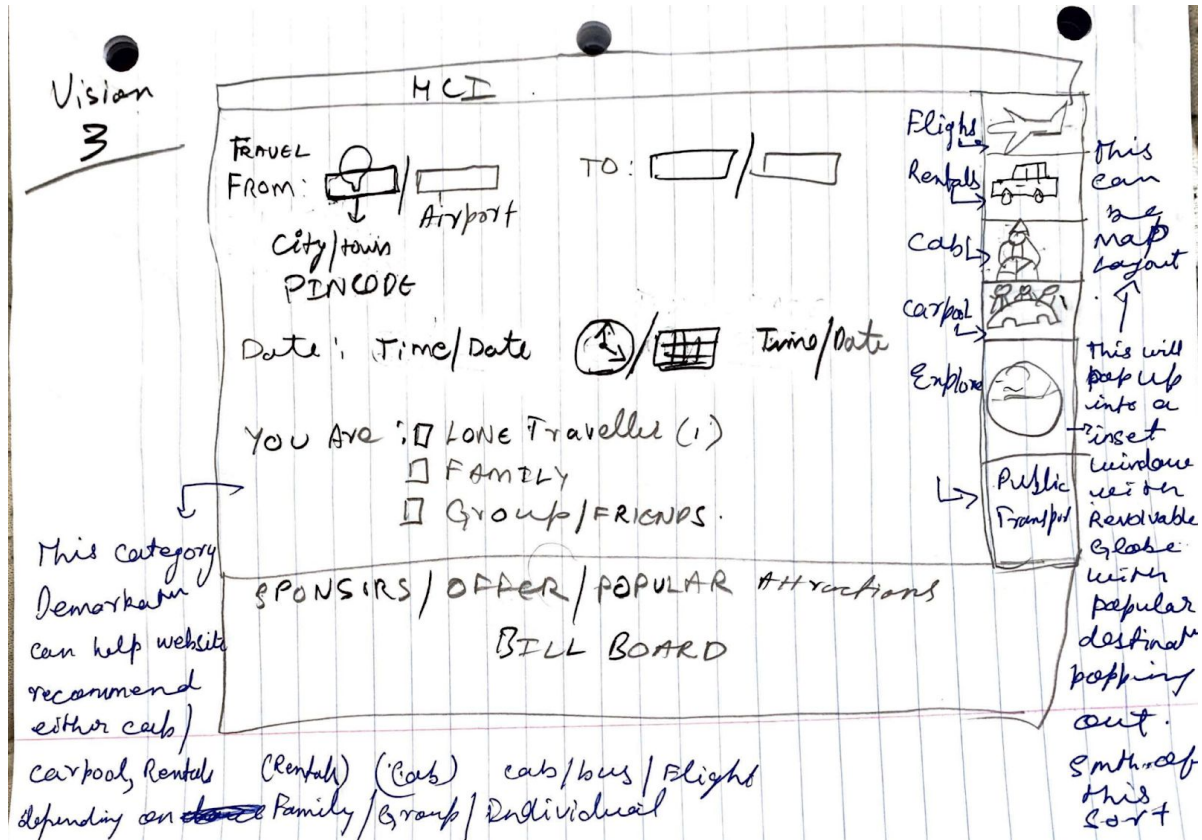 Vision
3
MCI
TRAVEL
FROM: / TO: /
Airport
City/town
PINCODE
Date: Time/Date / Time/Date
YOU Are: LONE Traveller (1)
FAMILY
Group/FRIENDS.
SPONSIRS/OFFER/POPULAR Attractions
BILL BOARD
Flighs
Rentals
Cabs
Carpool
Explore
Public
Transport
This
can
be
Map
Layout
This will
pop up
into a
inset
window
with
Revolvable
Globe
with
popular
destinat
popping
out.
Smth of
this
sort
This category
Demarkatn
can help website
recommend
either cab/
carpool, Rentals
depending on Family/Group/Individual
(Rentals) (Cab) cab/bus/Flight